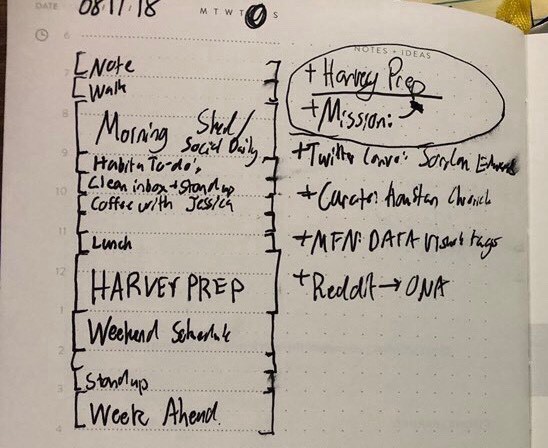 DATE 08.17.18
M T W T F S S
6
Note
7
Walk
8
Morning Shed/
Social Daily
9
Habita To-do's
Clean inbox + standup
10
Coffee with Jessica
11
Lunch
12
HARVEY PREP
1
Weekend Schedule
2
Standup
3
Week Ahead
4
NOTES + IDEAS
+ Harvey Prep
+ Mission:
+ Twitter Convo:
+ Curate: Houston Chronicle
+ MFN: DATA Visual tags
+ Reddit → ONA